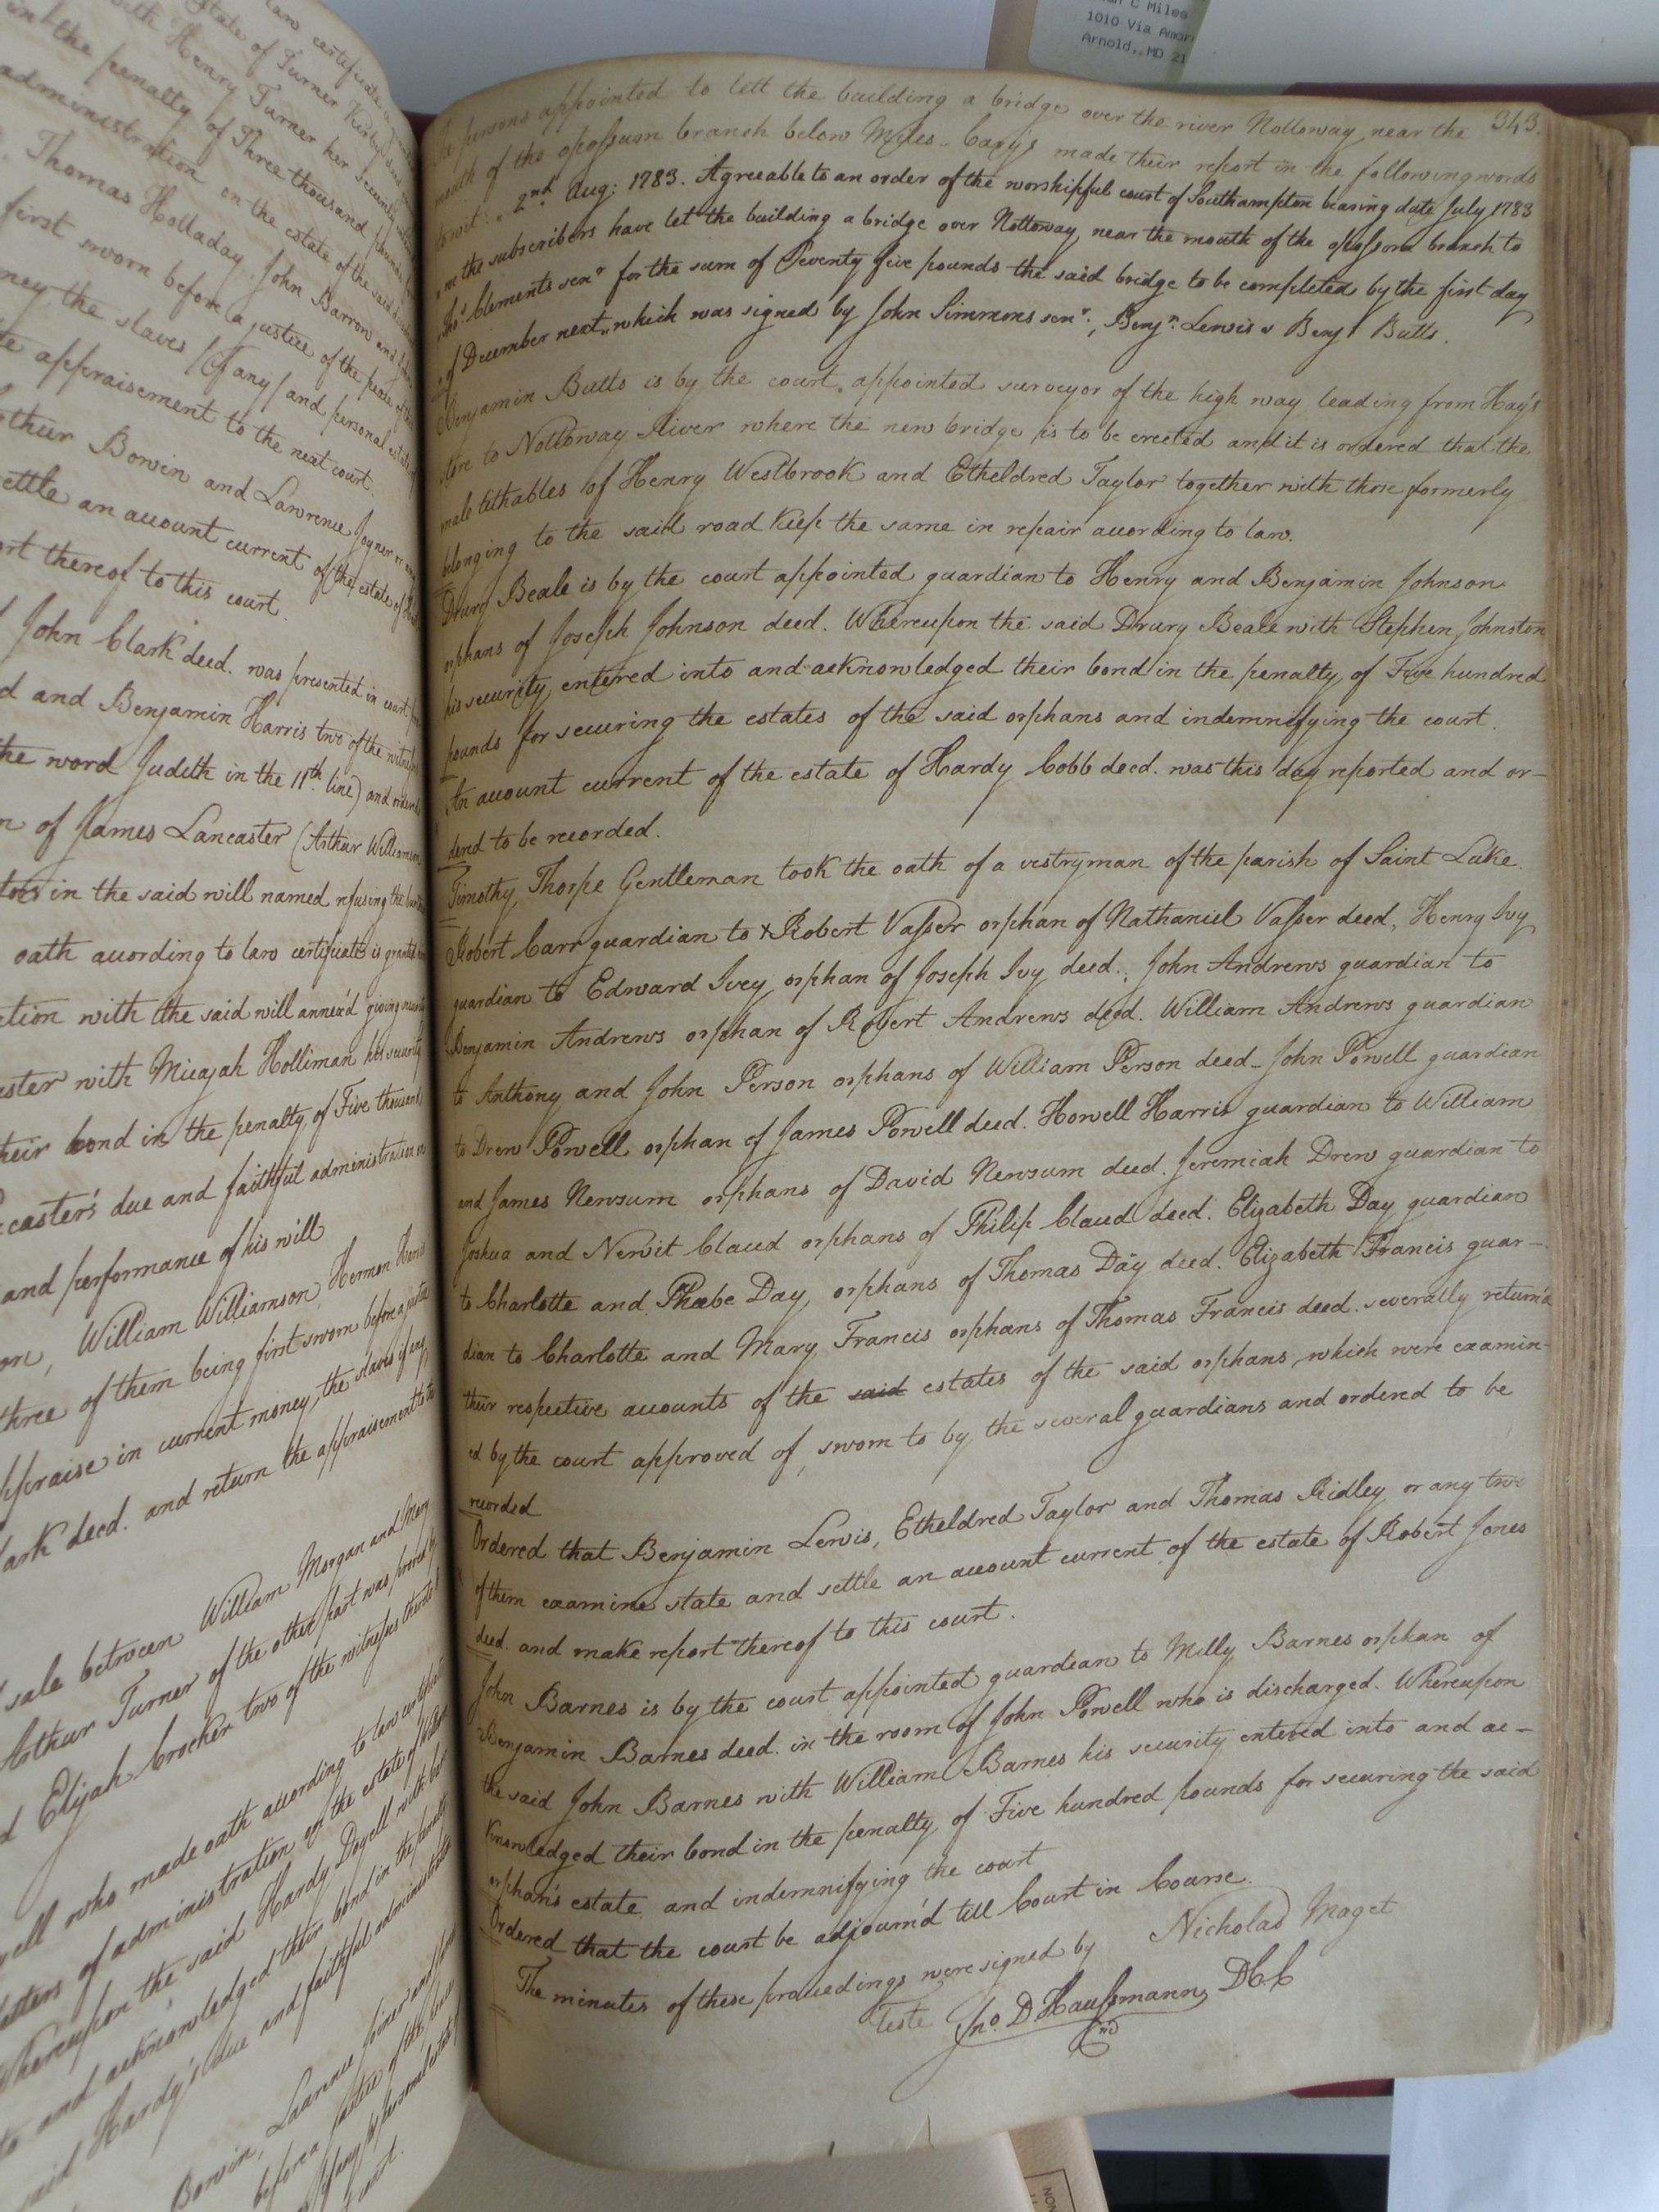 an certificate
state of Turner Kirby
with Henry Turner her security
in the penalty of Three thousand pounds
administration on the estate of the said
Thomas Holladay, John Barron and
first sworn before a justice of the peace
ney, the slaves (if any) and personal estate
e appraisement to the next court.
thur Bowin and Lawrence Joyner or
ettle an account current of the estate of
ort thereof to this court.
John Clark deced. was presented in court
d and Benjamin Harris two of the
the word Judith in the 11th. line) and
n of James Lancaster (Arthur Williamson
tors in the said will named refusing the
oath according to law certificate is granted
ction with the said will annex'd giving
ster with Micajah Holliman his security
heir bond in the penalty of Five thousand
caster's due and faithful administration
and performance of his will
on, William Williamson, Hermon
three of them being first sworn before a justice
ppraise in current money, the slaves if any
lark deced. and return the appraisement to
sale between William Morgan and Mary
Arthur Turner of the other part was proved by
d Elijah Crocker two of the witnesses thereto
yell who made oath according to law
letters of administration on the estate of
Whereupon the said Hardy Doyell with
to and acknowledged their bond in the penalty
said Hardy's due and faithful
Bowin,
before a justice of the
court.
C Miles
1010 Via Amor
Arnold, MD 21
343.
The persons appointed to lett the building a bridge over the river Nottoway near the
mouth of the opossum branch below Myles-Cary's made their report in the following words
to wit: " 2nd. Aug: 1783. Agreeable to an order of the worshipful court of Southampton bearing date July 1783
" we the subscribers have let the building a bridge over Nottoway, near the mouth of the opossom branch to
" Thos. Clements senr. for the sum of Seventy five pounds the said bridge to be completed by the first day
" of December next" which was signed by John Simmons senr., Benjn. Lewis & Benjn. Butts.
Benjamin Butts is by the court appointed surveyor of the high way leading from Hay's
store to Nottoway River where the new bridge is to be erected and it is ordered that the
male tithables of Henry Westbrook and Etheldred Taylor together with those formerly
belonging to the said road keep the same in repair according to law.
Drury Beale is by the court appointed guardian to Henry and Benjamin Johnson
orphans of Joseph Johnson deed. Whereupon the said Drury Beale with Stephen Johnston
his security entered into and acknowledged their bond in the penalty of Five hundred
pounds for securing the estates of the said orphans and indemnifying the court.
An account current of the estate of Hardy Cobb deed. was this day reported and or-
dered to be recorded.
Timothy Thorpe Gentleman took the oath of a vestryman of the parish of Saint Luke.
Robert Carr guardian to x Robert Vasser orphan of Nathaniel Vasser deed, Henry Ivy
guardian to Edward Ivey orphan of Joseph Ivy deed., John Andrews guardian to
Benjamin Andrews orphan of Robert Andrews deed. William Andrews guardian
to Anthony and John Person orphans of William Person deed - John Powell guardian
to Drew Powell orphan of James Powell deed. Howell Harris guardian to William
and James Newsum orphans of David Newsum deed. Jeremiah Drew guardian to
Joshua and Newit Claud orphans of Philip Claud deed. Elizabeth Day guardian
to Charlotte and Phœbe Day, orphans of Thomas Day deed. Elizabeth Francis guar-
dian to Charlotte and Mary Francis orphans of Thomas Francis deed. severally return'd
their respective accounts of the said estates of the said orphans, which were examin-
ed by the court approved of, sworn to by the several guardians and ordered to be
recorded
Ordered that Benjamin Lewis, Etheldred Taylor and Thomas Ridley or any two
of them examine state and settle an account current of the estate of Robert Jones
deed. and make report thereof to this court.
John Barnes is by the court appointed guardian to Milly Barnes orphan of
Benjamin Barnes deed. in the room of John Powell who is discharged. Whereupon
the said John Barnes with William Barnes his security entered into and ac-
knowledged their bond in the penalty of Five hundred pounds for securing the said
orphan's estate and indemnifying the court
Ordered that the court be adjourn'd till Court in Course.
The minutes of these proceedings were signed by Nicholas Maget
Teste Jno. D Haussmann, DCC